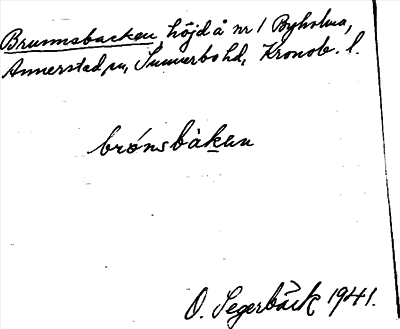 Brunnsbacken, höjd å nr 1 Byholma,
Annerstad sn, Sunnerbo hd, Kronob. l.
brónsbàkan
O. Segerbäck 1941.